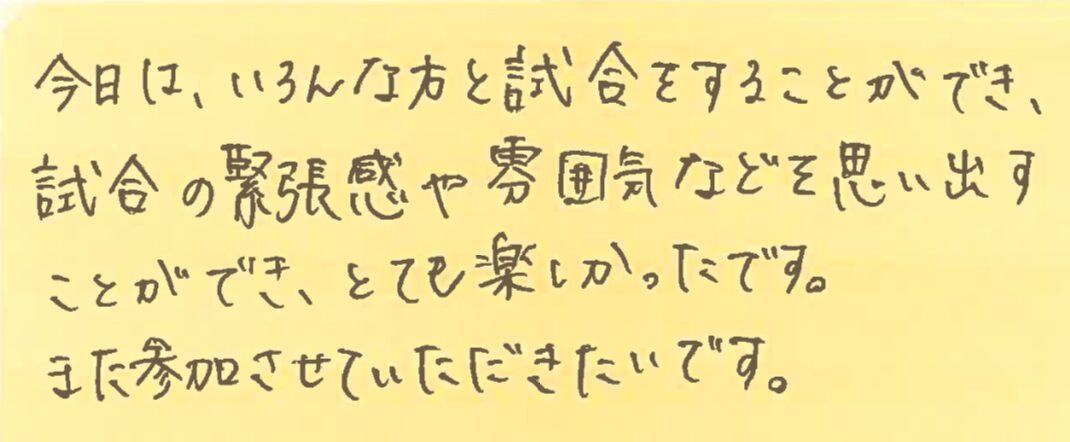 今日は、いろんな方と試合をすることができ、
試合の緊張感や雰囲気などを思い出す
ことができ、とても楽しかったです。
また参加させていただきたいです。